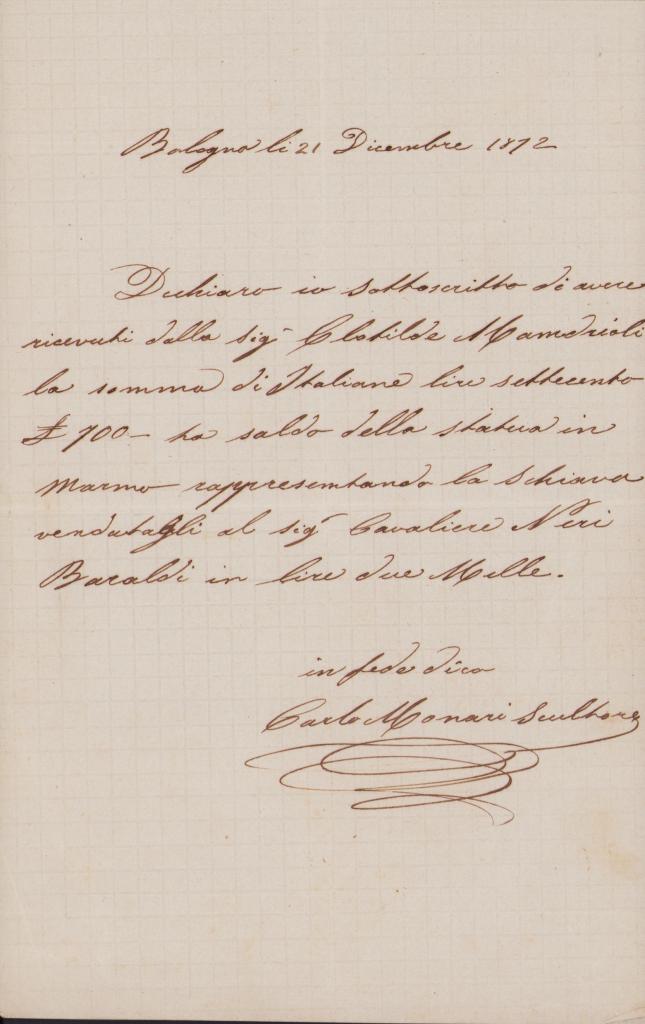 Bologna li 21 Dicembre 1872
Dichiaro io sottoscritto di avere
ricevuti dalla Sig.ª Clotilde Mamdrioli
la somma di Italiane lire settecento
£ 700 - ha saldo della statua in
Marmo rappresentando la Schiava
vendutagli al Sig.r Cavaliere Neri
Baraldi in lire due Mille.
in fede dico
Carlo Monari Scultore